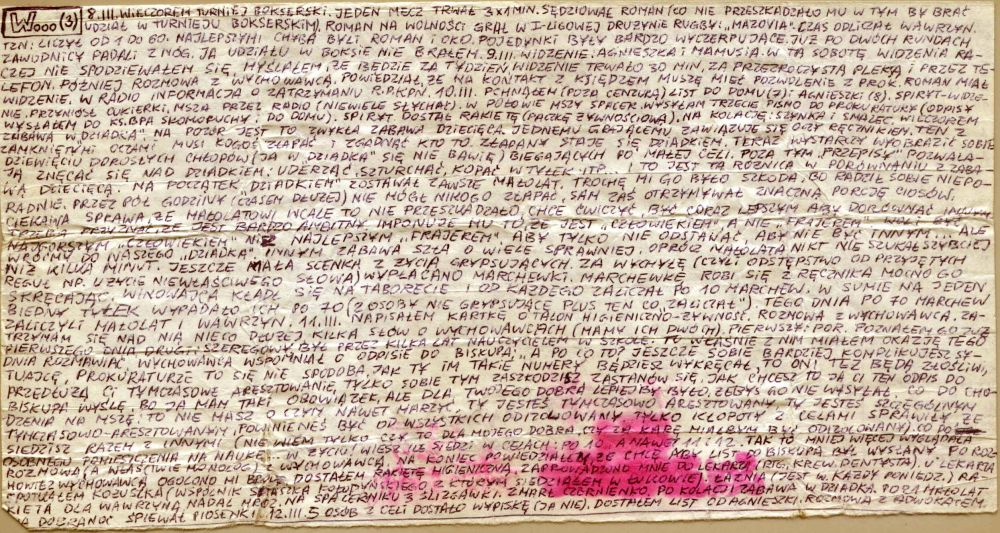 Wooo (3) 8.III. WIECZOREM TURNIEJ BOKSERSKI. JEDEN MECZ TRWAŁ 3x1MIN. SĘDZIOWAŁ ROMAN (CO NIE PRZESZKADZAŁO MU W TYM BY BRAĆ
UDZIAŁ W TURNIEJU BOKSERSKIM). ROMAN NA WOLNOŚCI GRAŁ W I-LIGOWEJ DRUŻYNIE RUGBY: „MAZOVIA". CZAS ODLICZAŁ WAWRZYN.
TZN: LICZYŁ OD 1 DO 60. NAJLEPSZYMI CHYBA BYLI ROMAN I OKO. POJEDYNKI BYŁY BARDZO WYCZERPUJĄCE. JUŻ PO DWÓCH RUNDACH
ZAWODNICY PADALI Z NÓG. JA UDZIAŁU W BOKSIE NIE BRAŁEM. 9.III. WIDZENIE: AGNIESZKA I MAMUSIA. W TĄ SOBOTĘ WIDZENIA RA-
CZEJ NIE SPODZIEWAŁEM SIĘ, MYŚLAŁEM, ŻE BĘDZIE ZA TYDZIEŃ. WIDZENIE TRWAŁO 30 MIN. ZA PRZEZROCZYSTĄ PLEKSĄ I PRZEZ TE-
LEFON. PÓŹNIEJ ROZMOWA Z WYCHOWAWCĄ. POWIEDZIAŁ, ŻE NA KONTAKT Z KSIĘDZEM MUSZĘ MIEĆ POZWOLENIE Z PROK. ROMAN MIAŁ
WIDZENIE. W RADIO INFORMACJA O ZATRZYMANIU R.P.KPN. 10.III. PCHNĄŁEM (POZA CENZURĄ) LIST DO DOMU (7) I AGNIESZKI (8). SPIRYT-WIDZ-
NIE. PRZYNIÓSŁ CUKIERKI. MSZA PRZEZ RADIO (NIEWIELE SŁYCHAĆ). W POŁOWIE MSZY SPACER. WYSYŁAM TRZECIE PISMO DO PROKURATURY (ODPISY
WYSŁAŁEM DO KS. BPA SŁOMORUCHY I DO DOMU). SPIRYT DOSTAŁ RAKIETĘ (PACZKĘ ŻYWNOŚCIOWĄ). NA KOLACJĘ: SZYNKA I SMALEC. WIECZOREM
ZABAWA W „DZIADKA" NA POZÓR JEST TO ZWYKŁA ZABAWA DZIECIĘCA. JEDNEMU GRAJĄCEMU ZAWIĄZUJE SIĘ OCZY RĘCZNIKIEM. TEN Z
ZAMKNIĘTYMI OCZAMI MUSI KOGOŚ ZŁAPAĆ I ZGADNĄĆ KTO TO. ZŁAPANY STAJE SIĘ DZIADKIEM. TERAZ WYSTARCZY WYOBRAZIĆ SOBIE
DZIEWIĘCIU DOROSŁYCH CHŁOPÓW (JA W „DZIADKA" SIĘ NIE BAWIĘ) BIEGAJĄCYCH PO MAŁEJ CELI. POZA TYM „PRZEPISY" POZWALA-
JĄ ZNĘCAĆ SIĘ NAD DZIADKIEM: UDERZAĆ, SZTURCHAĆ, KOPAĆ W TYŁEK ITP... TO JEST TA RÓŻNICA W PORÓWNANIU Z ZABA-
WĄ DZIECIĘCĄ. NA POCZĄTEK „DZIADKIEM" ZOSTAWAŁ ZAWSZE MAŁOLAT. TROCHĘ MI GO BYŁO SZKODA, BO RADZIŁ SOBIE NIEPO-
RADNIE. PRZEZ PÓŁ GODZINY (CZASEM DŁUŻEJ) NIE MÓGŁ NIKOGO ZŁAPAĆ, SAM ZAŚ OTRZYMYWAŁ ZNACZNĄ PORCJĘ CIOSÓW.
CIEKAWA SPRAWA, ŻE MAŁOLATOWI WCALE TO NIE PRZESZKADZAŁO, CHCE ĆWICZYĆ, BYĆ CORAZ LEPSZYM ABY DORÓWNAĆ INNYM
TRZEBA PRZYZNAĆ, ŻE JEST BARDZO AMBITNY. IMPONUJE MU TO, ŻE JEST „CZŁOWIEKIEM", A NIE „FRAJEREM" WOLI BYĆ
NAJGORSZYM „CZŁOWIEKIEM" NIŻ NAJLEPSZYM „FRAJEREM". ABY TYLKO NIE ODSTAWAĆ, ABY NIE BYĆ INNYM. ALE
WRÓĆMY DO NASZEGO „DZIADKA" INNYM ZABAWA SZŁA O WIELE SPRAWNIEJ. OPRÓCZ MAŁOLATA NIKT NIE SZUKAŁ SZYBCIEJ
NIŻ KILKA MINUT. JESZCZE MAŁA SCENKA Z ŻYCIA GRYPSUJĄCYCH. ZA WYCHYŁĘ (CZYLI ODSTĘPSTWO OD PRZYJĘTYCH
REGUŁ NP. UŻYCIE NIEWŁAŚCIWEGO SŁOWA) WYPŁACANO MARCHEWKI. MARCHEWKĘ ROBI SIĘ Z RĘCZNIKA MOCNO GO
SKRĘCAJĄC. WINOWAJCA KŁADŁ SIĘ NA TABORECIE I OD KAŻDEGO ZALICZAŁ PO 10 MARCHEW. W SUMIE NA JEDEN
BIEDNY TYŁEK WYPADAŁO ICH PO 70 (2 OSOBY NIE GRYPSUJĄCE PLUS TEN CO „ZALICZAŁ"). TEGO DNIA PO 70 MARCHEW
ZALICZYLI MAŁOLAT I WAWRZYN. 11.III. NAPISAŁEM KARTKĘ O TALON HIGIENICZNO-ŻYWNOŚC. ROZMOWA Z WYCHOWAWCĄ, ZA-
TRZYMAM SIĘ NAD NIĄ NIECO DŁUŻEJ. KILKA SŁÓW O WYCHOWAWCACH (MAMY ICH DWÓCH). PIERWSZY: POR. POZNAŁEM GO JUŻ
PIERWSZEGO DNIA. DRUGI: SZEREGOWY BYŁ PRZEZ KILKA LAT NAUCZYCIELEM W SZKOLE. TO WŁAŚNIE Z NIM MIAŁEM OKAZJĘ TEGO
DNIA ROZMAWIAĆ. WYCHOWAWCA WSPOMNIAŁ O ODPISIE DO BISKUPA: „A PO CO TO? JESZCZE SOBIE BARDZIEJ KOMPLIKUJESZ SY-
TUACJĘ, PROKURATURZE TO SIĘ NIE SPODOBA, JAK TY IM TAKIE NUMERY BĘDZIESZ WYKRĘCAŁ, TO ONI TEŻ BĘDĄ ZŁOŚLIWI,
PRZEDŁUŻĄ CI TYMCZASOWE ARESZTOWANIE, TYLKO SOBIE TYM ZASZKODZISZ. ZASTANÓW SIĘ. JAK CHCESZ TO JA CI TEN ODPIS DO
BISKUPA WYŚLĘ, BO JA MAM TAKI OBOWIĄZEK, ALE DLA TWOJEGO DOBRA LEPIEJ BY BYŁO, ŻEBYŚ TEGO NIE WYSYŁAŁ. CO DO CHO-
DZENIA NA MSZĘ: TO NIE MASZ O CZYM NAWET MARZYĆ. TY JESTEŚ TYMCZASOWO ARESZTOWANY, TY JESTEŚ SZCZEGÓLNYM
TYMCZASOWO-ARESZTOWANYM I POWINIENEŚ BYĆ OD WSZYSTKICH ODIZOLOWANY. TYLKO KŁOPOTY Z CELAMI SPRAWIŁY, ŻE
SIEDZISZ RAZEM Z INNYMI (NIE WIEM TYLKO CZY TO DLA MOJEGO DOBRA, CZY ZA KARĘ MIAŁBYM BYĆ ODIZOLOWANY). CO DO
W ŻYCIU! WIESZ ILE SIEDZI W CELACH: PO 10, A NAWET 11 I 12. TAK TO MNIEJ WIĘCEJ WYGLĄDAŁA
ROZMOWA (A WŁAŚCIWIE MONOLOG) Z WYCHOWAWCĄ. NA KONIEC POWIEDZIAŁEM, ŻE CHCĘ ABY LIST DO BISKUPA BYŁ WYSŁANY. PO ROZ-
MOWIE Z WYCHOWAWCĄ OGOLONO MI BRODĘ. DOSTAŁEM RAKIETĘ HIGIENICZNĄ. ZAPROWADZONO MNIE DO LEKARZA (RTG, KREW, DENTYSTA). U LEKARZA
SPOTKAŁEM KOŻUSZKA (WSPÓLNIK STASZKA Z KTÓRYM SIEDZIAŁEM W). ŁAŹNIA (JEST W KAŻDY PONIEDZ.) RA-
KIETA DLA WAWRZYNA. NADAL MRÓZ. NA SPACERNIKU 3 ŚLIZGAWKI. ZMARŁ CZERNIENKO. PO KOLACJI ZABAWA W DZIADKA. POZA MAŁOLAT
NA DOBRANOC ŚPIEWAŁ PIOSENKI. 12.III 5 OSÓB Z CELI DOSTAŁO WYPISKĘ (JA NIE). DOSTAŁEM LIST OD AGNIESZKI. ROZMOWA Z ADWOKATEM.